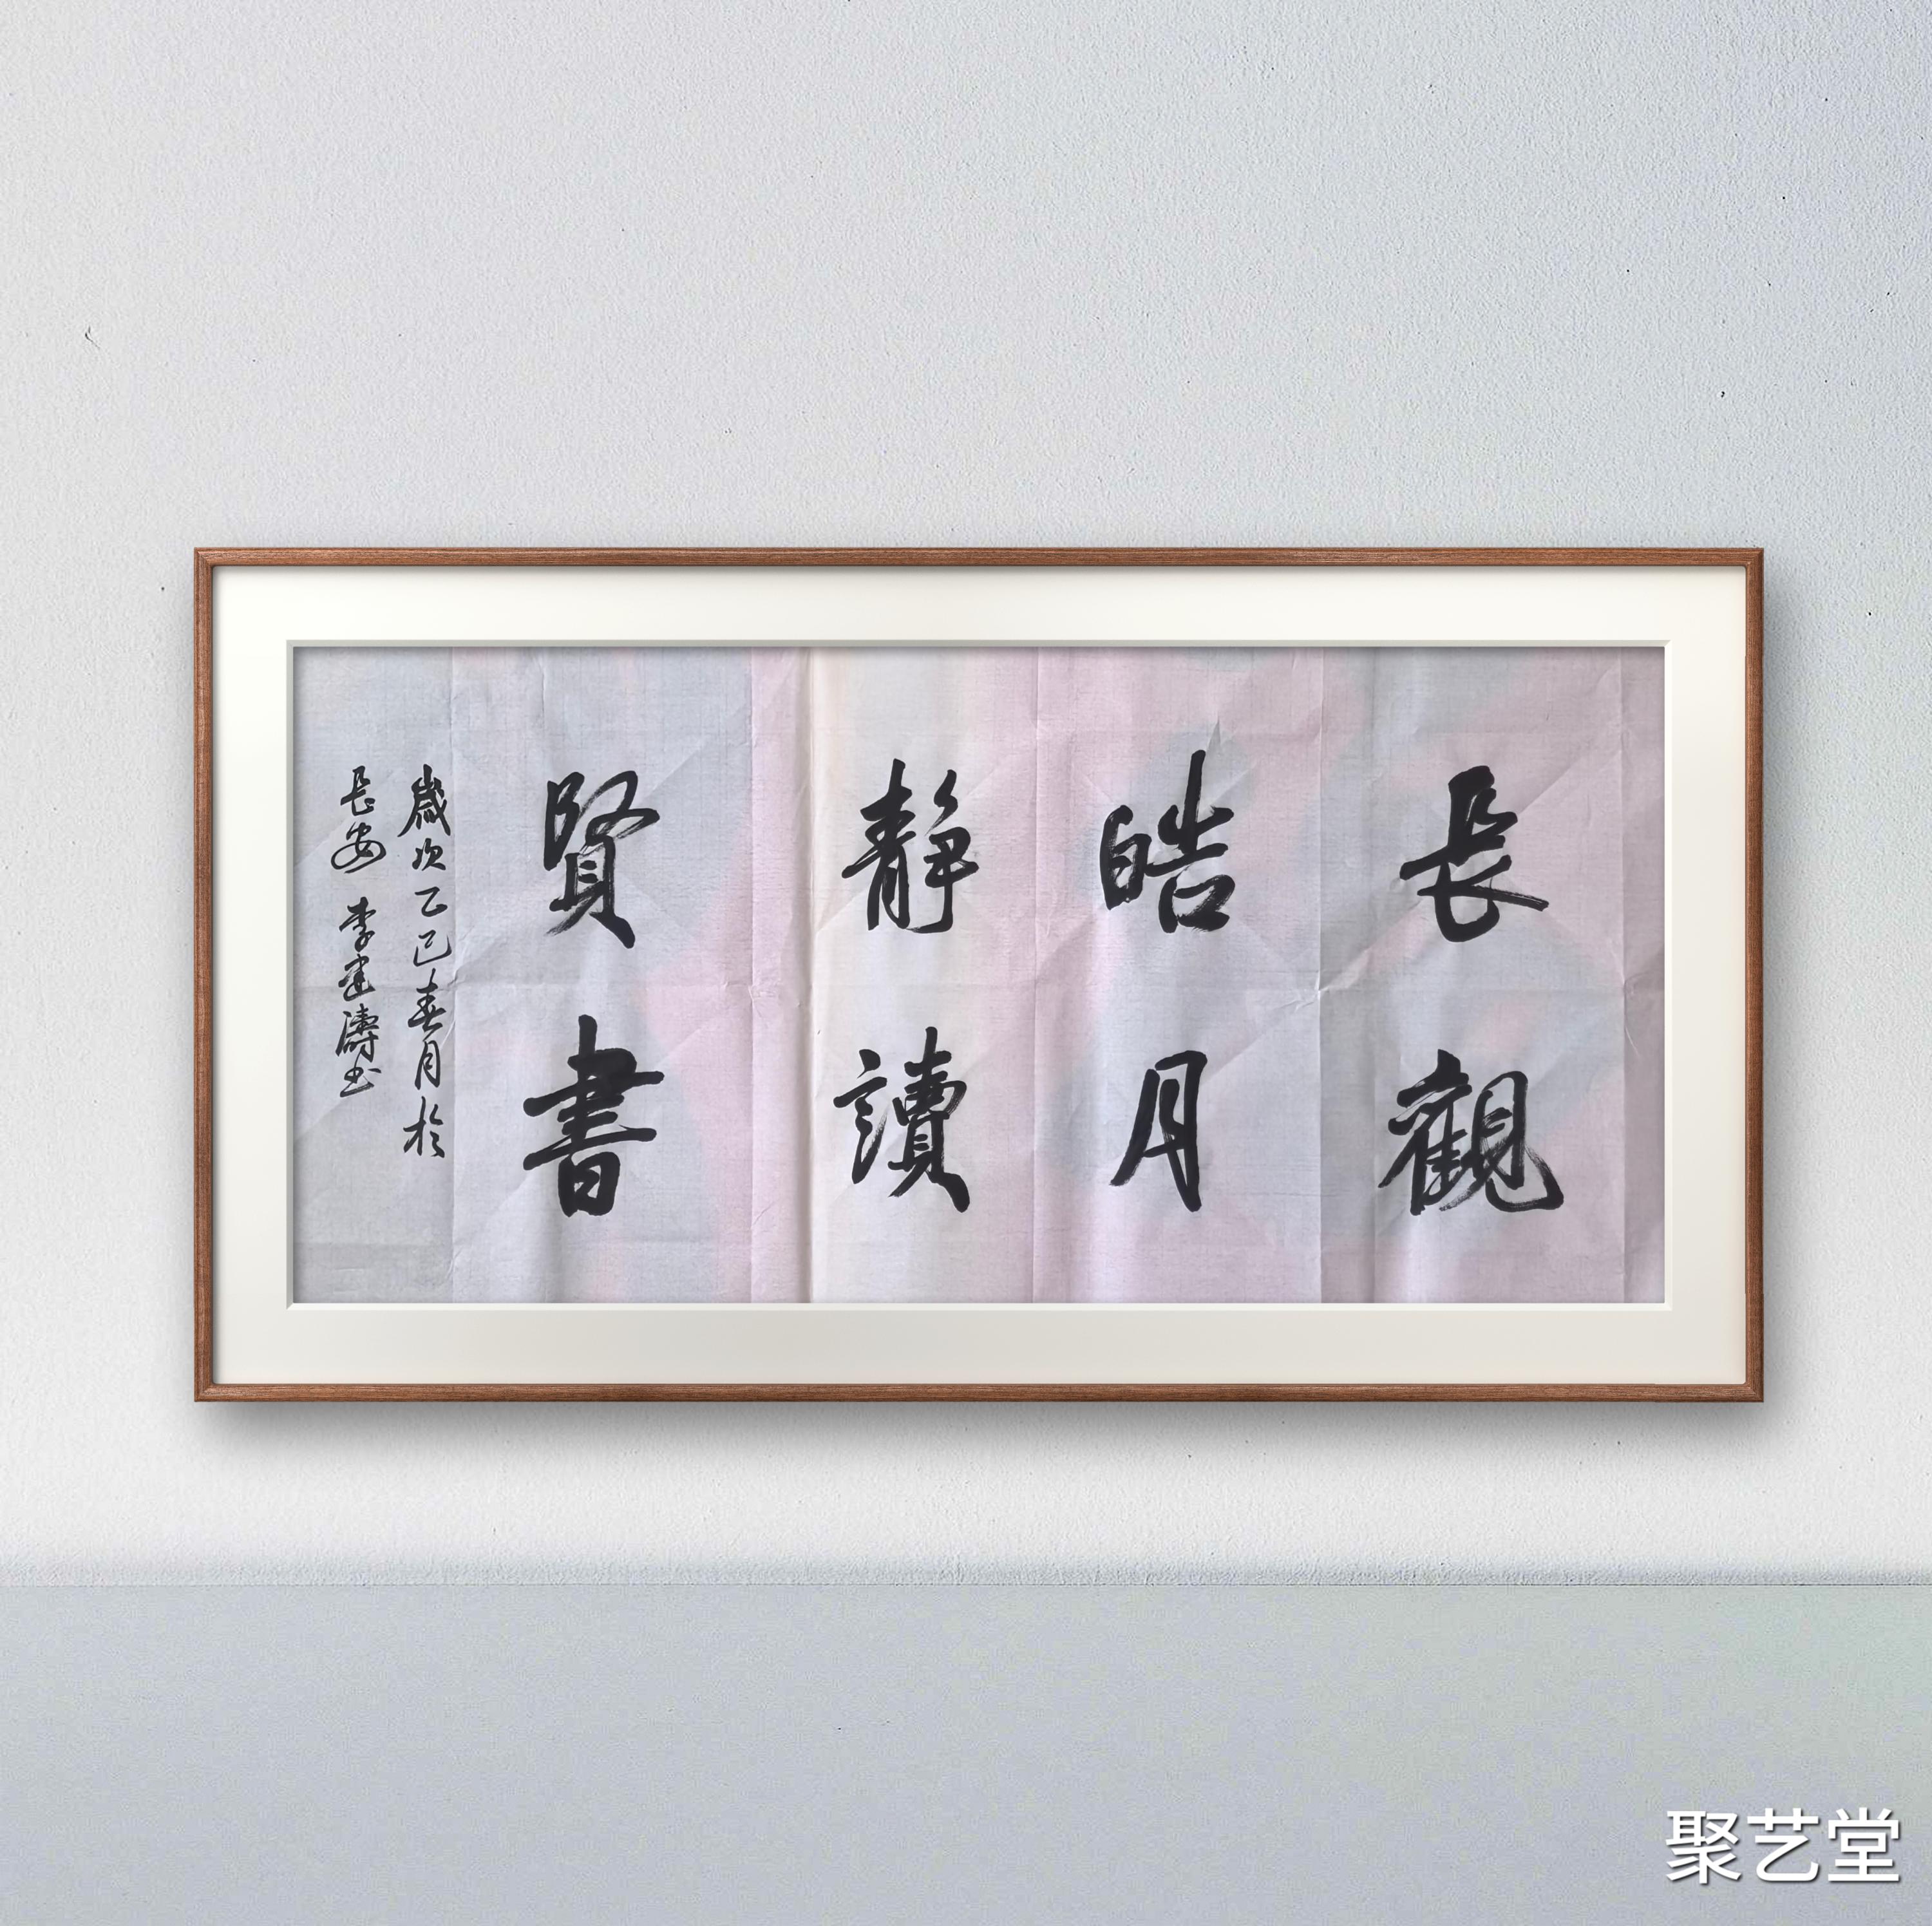 長觀
皓月
靜讀
賢書
歲次乙巳春月於
長安 李建濤书
聚艺堂